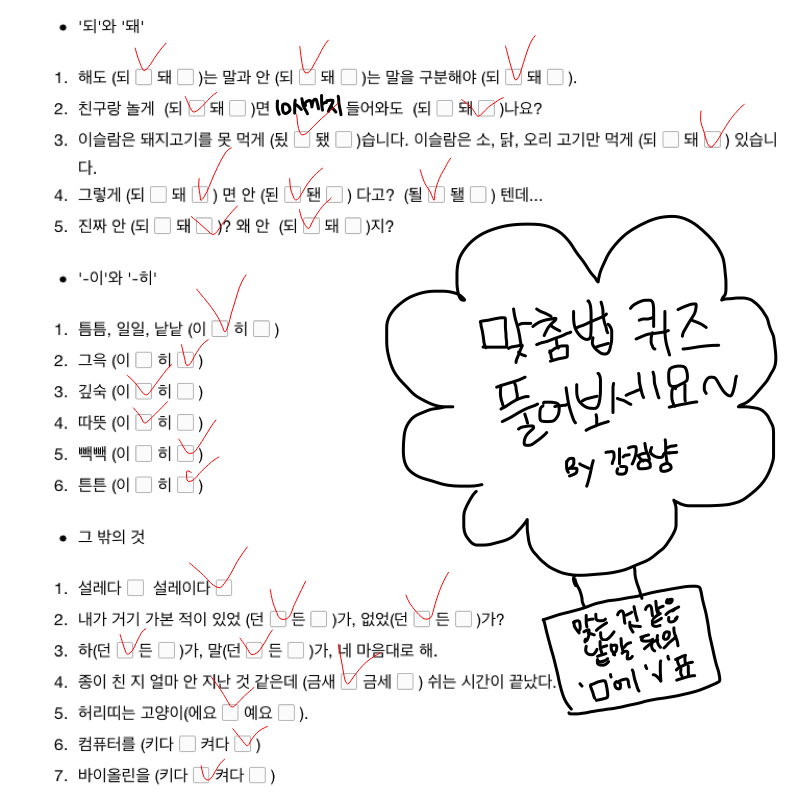 • '되'와 '돼'
1. 해도 (되 ☑ 돼 ☐)는 말과 안 (되 ☑ 돼 ☐)는 말을 구분해야 (되 ☑ 돼 ☐).
2. 친구랑 놀게 (되 ☑ 돼 ☐)면 10시까지 들어와도 (되 ☐ 돼 ☑)나요?
3. 이슬람은 돼지고기를 못 먹게 (됬 ☑ 됐 ☐)습니다. 이슬람은 소, 닭, 오리 고기만 먹게 (되 ☐ 돼 ☑) 있습니
다.
4. 그렇게 (되 ☐ 돼 ☑) 면 안 (된 ☑ 됀 ☐) 다고? (될 ☑ 됄 ☐) 텐데...
5. 진짜 안 (되 ☐ 돼 ☑)? 왜 안 (되 ☑ 돼 ☐)지?
• '-이'와 '-히'
1. 틈틈, 일일, 낱낱 (이 ☑ 히 ☐)
2. 그윽 (이 ☐ 히 ☑)
3. 깊숙 (이 ☑ 히 ☐)
4. 따뜻 (이 ☑ 히 ☐)
5. 빽빽 (이 ☐ 히 ☑)
6. 튼튼 (이 ☐ 히 ☑)
• 그 밖의 것
1. 설레다 ☐ 설레이다 ☑
2. 내가 거기 가본 적이 있었 (던 ☑ 든 ☐)가, 없었(던 ☑ 든 ☐)가?
3. 하(던 ☑ 든 ☐)가, 말(던 ☑ 든 ☐)가, 네 마음대로 해.
4. 종이 친 지 얼마 안 지난 것 같은데 (금새 ☑ 금세 ☐) 쉬는 시간이 끝났다.
5. 허리띠는 고양이(에요 ☑ 예요 ☐).
6. 컴퓨터를 (키다 ☐ 켜다 ☑)
7. 바이올린을 (키다 ☑ 켜다 ☐)
맞춤법 퀴즈
풀어보세요~
By 강점냥
맞는 것 같은
낱말 뒤의
'□'에 '√'표